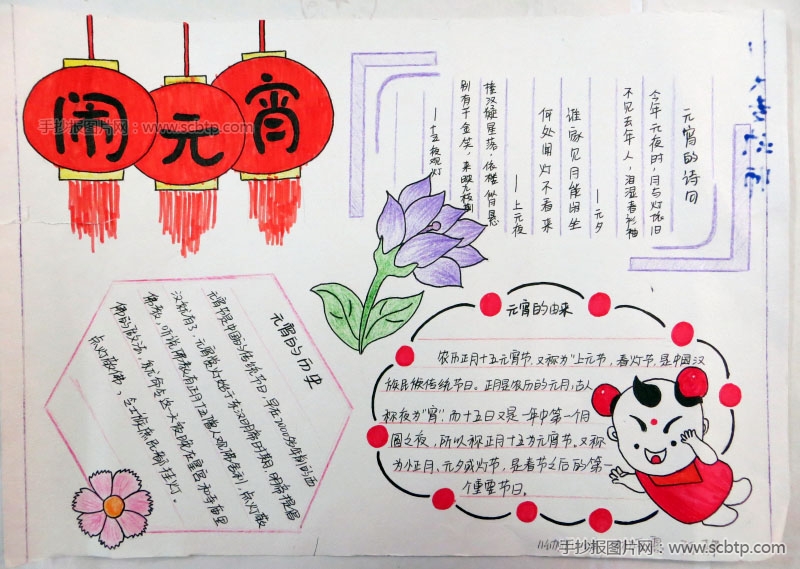 闹元宵
手抄报图片网:www.scbtp.com
元宵的诗句
今年元夜时,月与灯依旧
不见去年人,泪湿春衫袖
——元夕
谁家见月能闲坐
何处闻灯不看来
——上元夜
接汉疑星落,依楼似月悬
别有千金笑,来映九枝前
——十五夜观灯
元宵的历史
元宵节是中国的传统节日,早在2000多年前的西
汉就有了,元宵赏灯始于东汉明帝时期,明帝提倡
佛教,听说佛教有正月十五僧人观佛舍利,点灯敬
佛的做法,就命令这一天夜晚在皇宫和寺庙里
点灯敬佛,令士族庶民都挂灯。
元宵的由来
农历正月十五元宵节,又称为“上元节,春灯节,是中国汉
族民族传统节日。正月是农历的元月,古人
称夜为“宵”,而十五日又是一年中第一个月
圆之夜,所以称正月十五为元宵节。又称
为小正月、元夕或灯节,是春节之后的第一
个重要节日。
手抄报图片网:www.scbtp.com